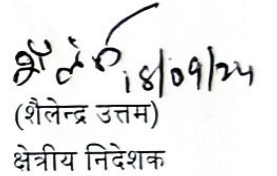 18/09/24
(शैलेन्द्र उत्तम)
क्षेत्रीय निदेशक